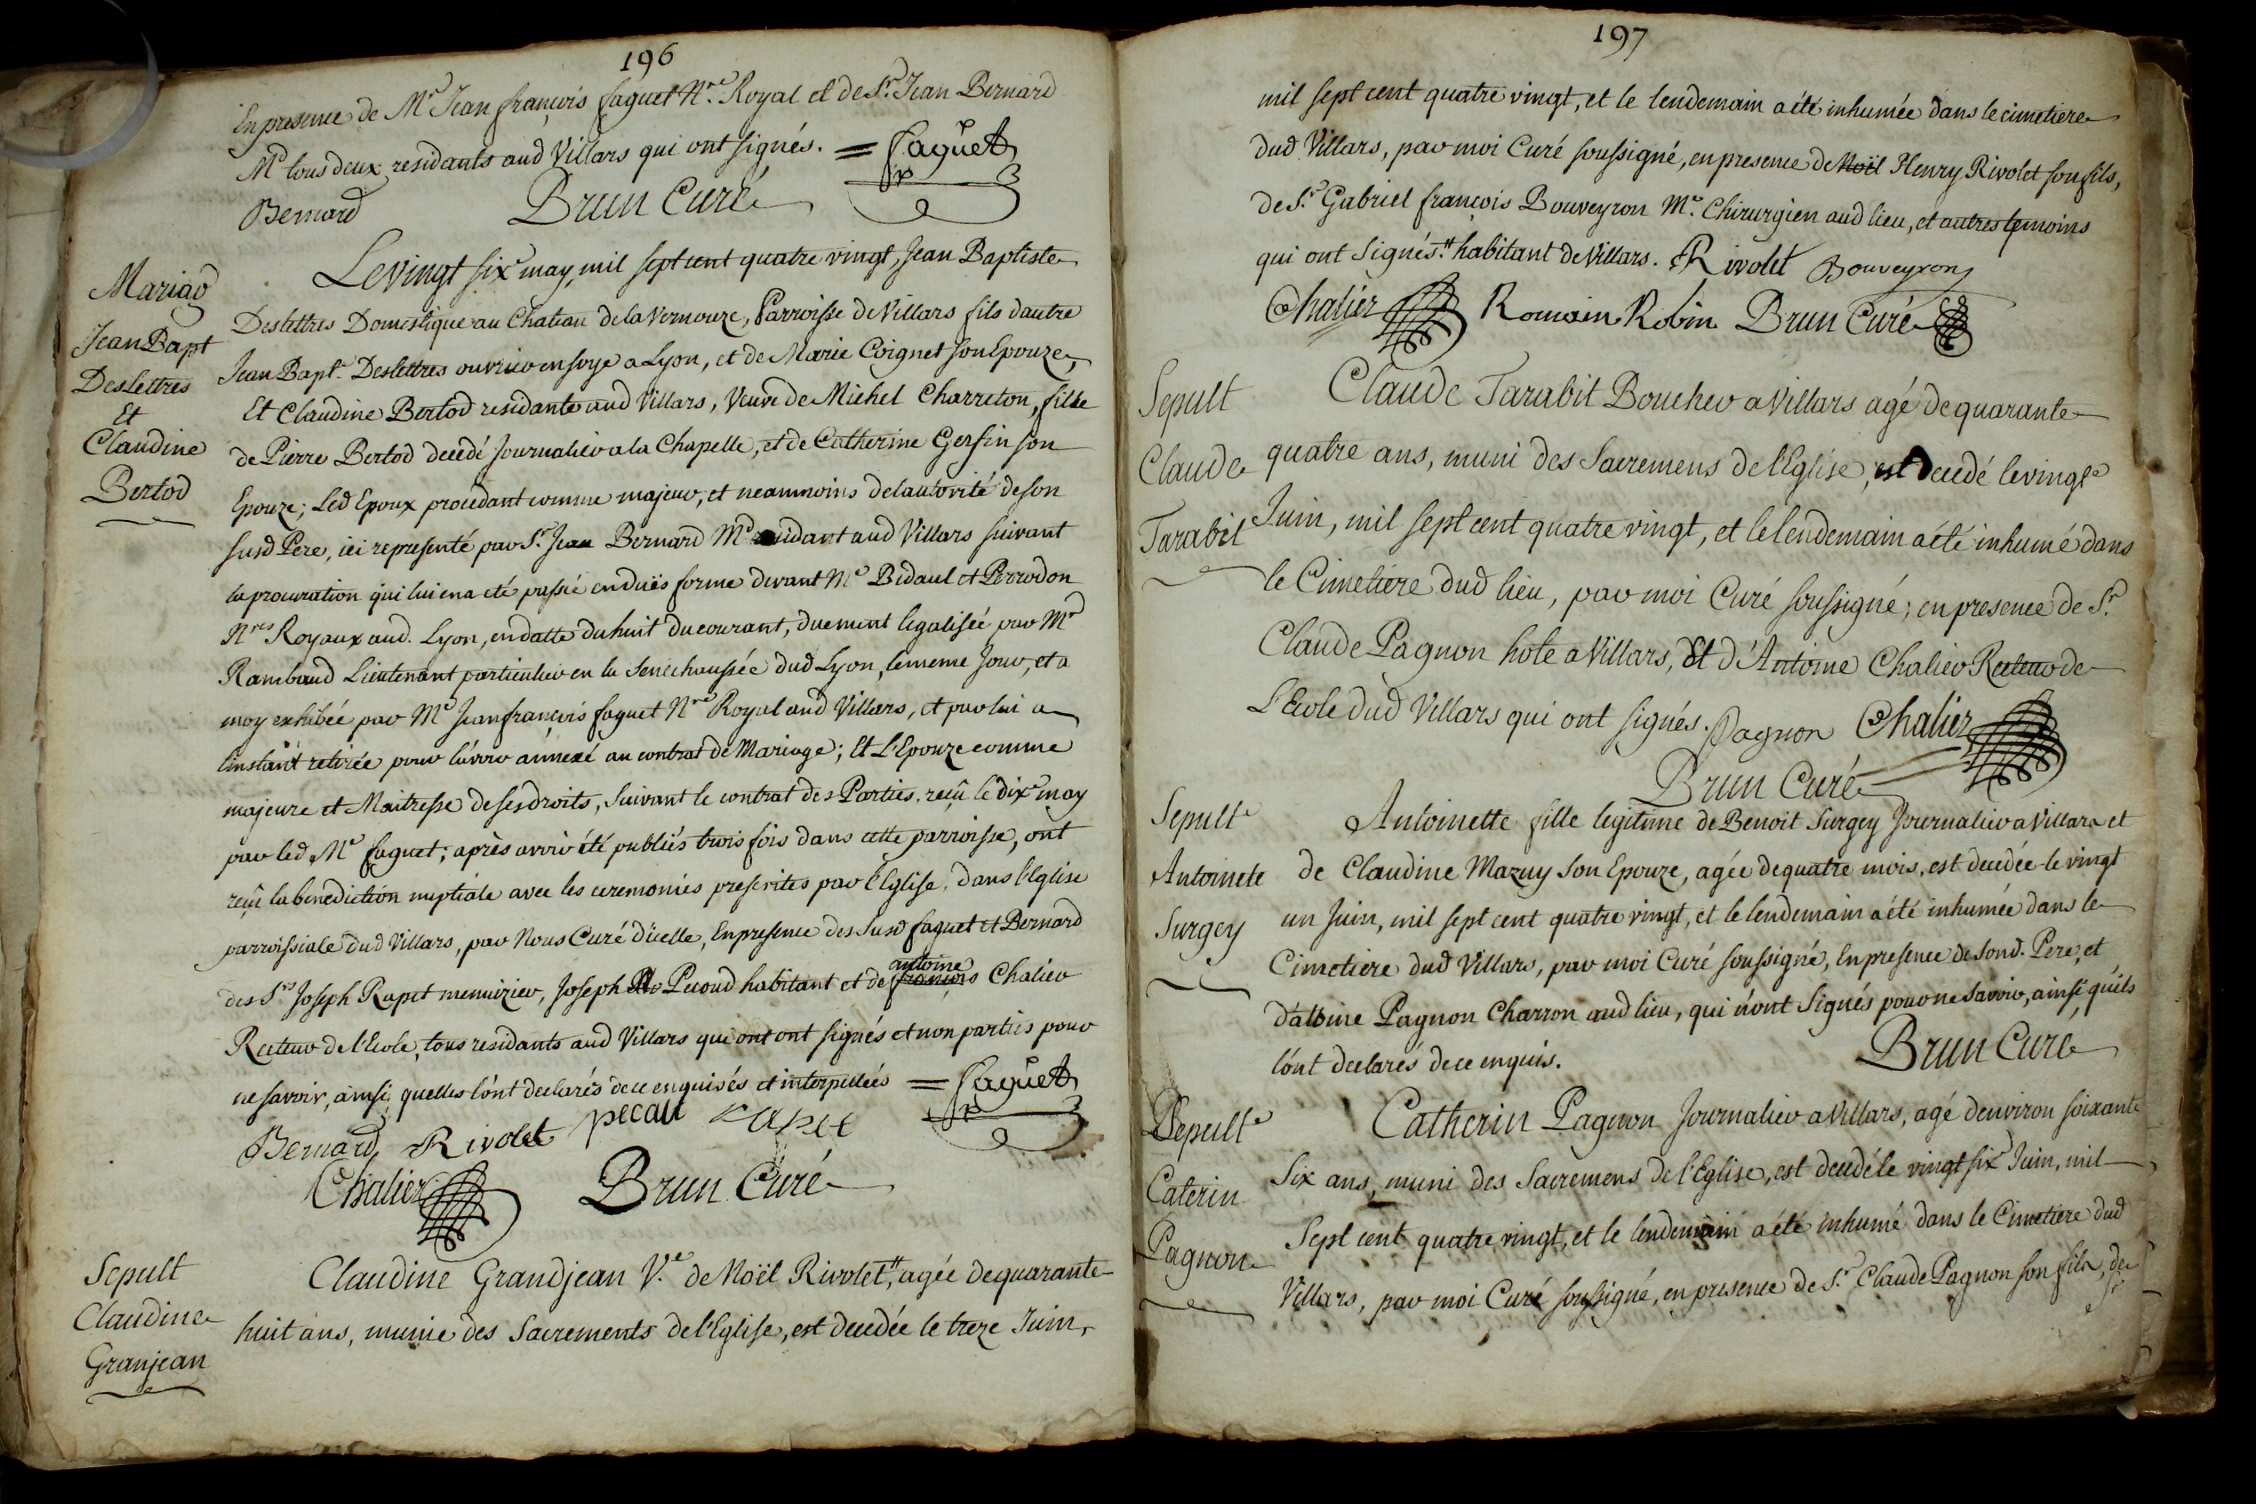 196
En presence de Mr Jean françois faguet Nre Royal et de Sr Jean Bernard
Md tous deux residants aud Villars qui ont signés. = faguet
Bernard Brun Curé
Mariag
Jean Bapt
Deslettres
Et
Claudine
Bertod
Le vingt six may, mil sept cent quatre vingt, Jean Baptiste
Deslettres Domestique au Chateau de la Vernouze, Parroisse de Villars fils d'autre
Jean Bapt. Deslettres ouvrier en soye a Lyon, et de Marie Coignet son Epouze,
Et Claudine Bertod residante aud Villars, Veuve de Michel Charreton, fille
de Pierre Bertod decedé Journalier a la Chapelle, et de Catherine Gerfin son
Epouze; Led Epoux procedant comme majeur, et neammoins de l'autorité de son
susd Pere, ici representé par Sr Jean Bernard Md residant aud Villars suivant
la procuration qui lui en a eté passée en duës forme devant Me Bidaul et Perrodon
Nres Royaux aud. Lyon, en datte du huit du courant, duement legalisée par Mr
Rambaud Lieutenant particulier en la Senechaussée dud Lyon, le meme Jour, et a
moy exhibée par Me Jean françois faguet Nre Royal aud Villars, et par lui a
l'instant retirée pour l'avoir annexé au contrat de Mariage; Et L'Epouze comme
majeure et Maitresse de ses droits, suivant le contrat des Parties, reçû le dix may
par led Me faguet; après avoir été publiés trois fois dans cette parroisse, ont
reçû la benediction nuptiale avec les ceremonies prescrites par l'Eglise, dans l'Eglise
parroissiale dud Villars, par Nous Curé d'icelle, En presence des Susd faguet et Bernard
des Srs Joseph Rapet menuizier, Joseph Pecoud habitant et de françois antoine Chalier
Recteur de l'Ecole, tous residants aud Villars qui ont ont signés et non parties pour
ne savoir, ainsi quelles l'ont declarés de ce enquisés et interpellées = faguet
Bernard Rivolet pecau rapet
Chalier Brun Curé
Sepult
Claudine
Granjean
Claudine Grandjean Ve de Noël Rivolet, agée de quarante
huit ans, munie des Sacrements de l'Eglise, est decedée le treze Juin,
197
mil sept cent quatre vingt, et le lendemain a été inhumée dans le cimetiere
dud Villars, par moi Curé soussigné, en presence de Noël Henry Rivolet son fils,
de Sr Gabriel françois Bouveyron Me Chirurgien aud lieu, et autres temoins
qui ont signés. habitant de Villars. Rivolet Bouveyron
Chalier Romain Robin Brun Curé
Sepult
Claude
Tarabit
Claude Tarabit Boucher a Villars agé de quarante
quatre ans, muni des Sacremens de l'Eglise, est Decedé le vingt
Juin, mil sept cent quatre vingt, et le lendemain a été inhumé dans
le Cimetiere dud lieu, par moi Curé soussigné, en presence de Sr
Claude Pagnon hote a Villars, Et d'Antoine Chalier Recteur de
L'Ecole dud Villars qui ont signés. Pagnon Chalier
Brun Curé
Sepulte
Antoinete
Surgey
Antoinette fille legitime de Benoit Surgey Journalier a Villars et
de Claudine Mazuy son Epouze, agée de quatre mois, est decedée le vingt
un Juin, mil sept cent quatre vingt, et le lendemain a été inhumée dans le
Cimetiere dud Villars, par moi Curé soussigné, En presence de sond. Pere, et
Pagnon Charron aud lieu, qui n'ont signés pour ne savoir, ainsi qu'ils
l'ont declarés de ce enquis. Brun Curé
Sepulte
Caterin
Pagnon
Catherin Pagnon Journalier a Villars, agé d'environ soixante
Six ans, muni des Sacremens de l'Eglise, est decedé le vingt six Juin, mil
Sept cent quatre vingt, et le lendemain a été inhumé dans le Cimetiere dud
Villars, par moi Curé soussigné, en presence de Sr Claude Pagnon son fils, de
Sr